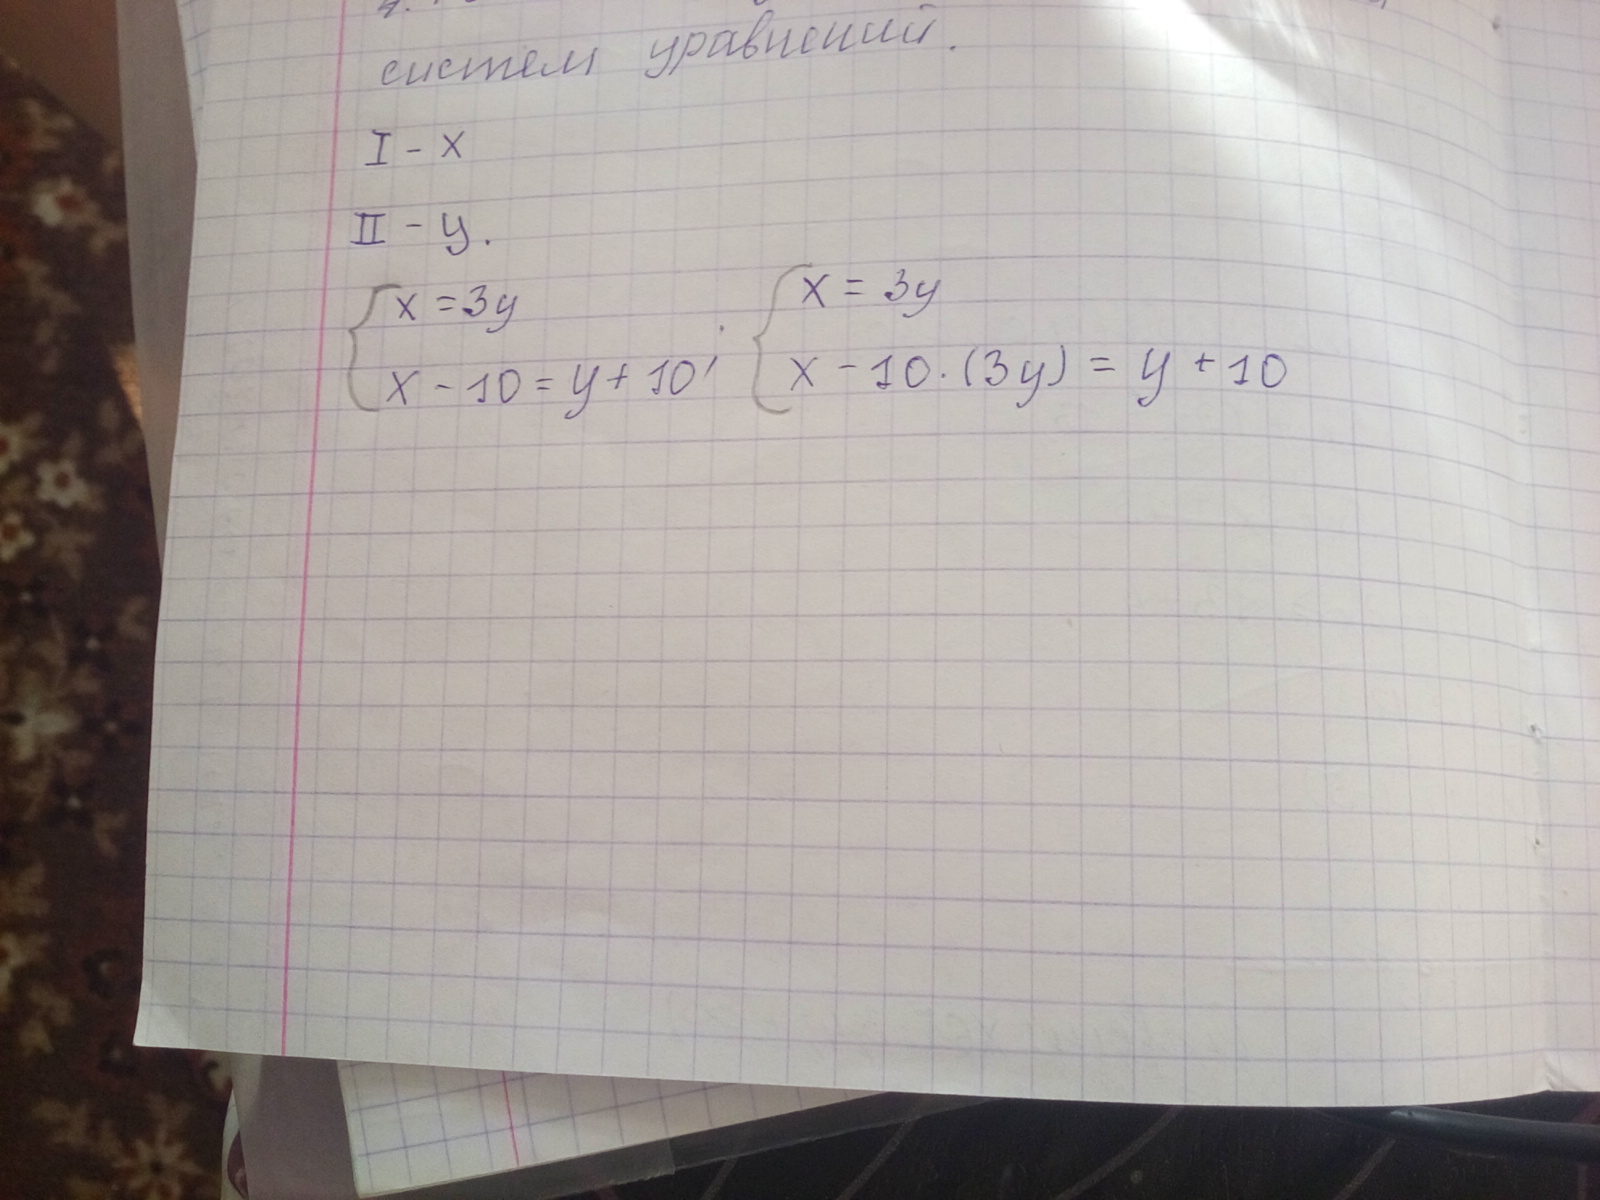 систем уравнений.
I - x
II - y.
x = 3y
x - 10 = y + 10;
x = 3y
x - 10 · (3y) = y + 10